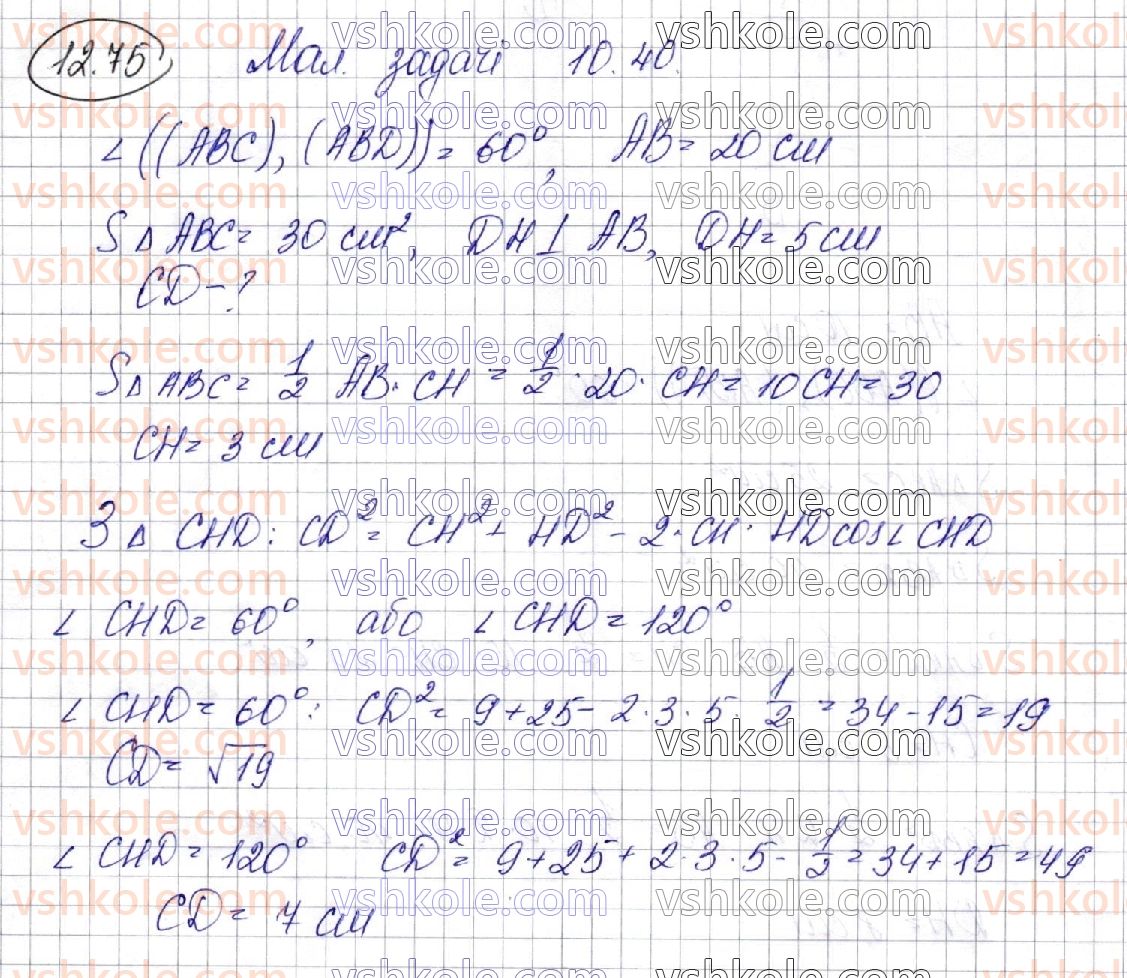 12.75 Мал. задачі 10.40.
∠((ABC), (ABD)) = 60°, AB = 20 см
S△ABC = 30 см², DH ⊥ AB, DH = 5 см
CD - ?
S△ABC = 1/2 AB · CH = 1/2 · 20 · CH = 10CH = 30
CH = 3 см
З △ CHD: CD² = CH² + HD² - 2 · CH · HD cos∠CHD
∠CHD = 60°, або ∠CHD = 120°
∠CHD = 60°: CD² = 9 + 25 - 2 · 3 · 5 · 1/2 = 34 - 15 = 19
CD = √19
∠CHD = 120° CD² = 9 + 25 + 2 · 3 · 5 - 1/2 = 34 + 15 = 49
CD = 7 см
vshkole.com